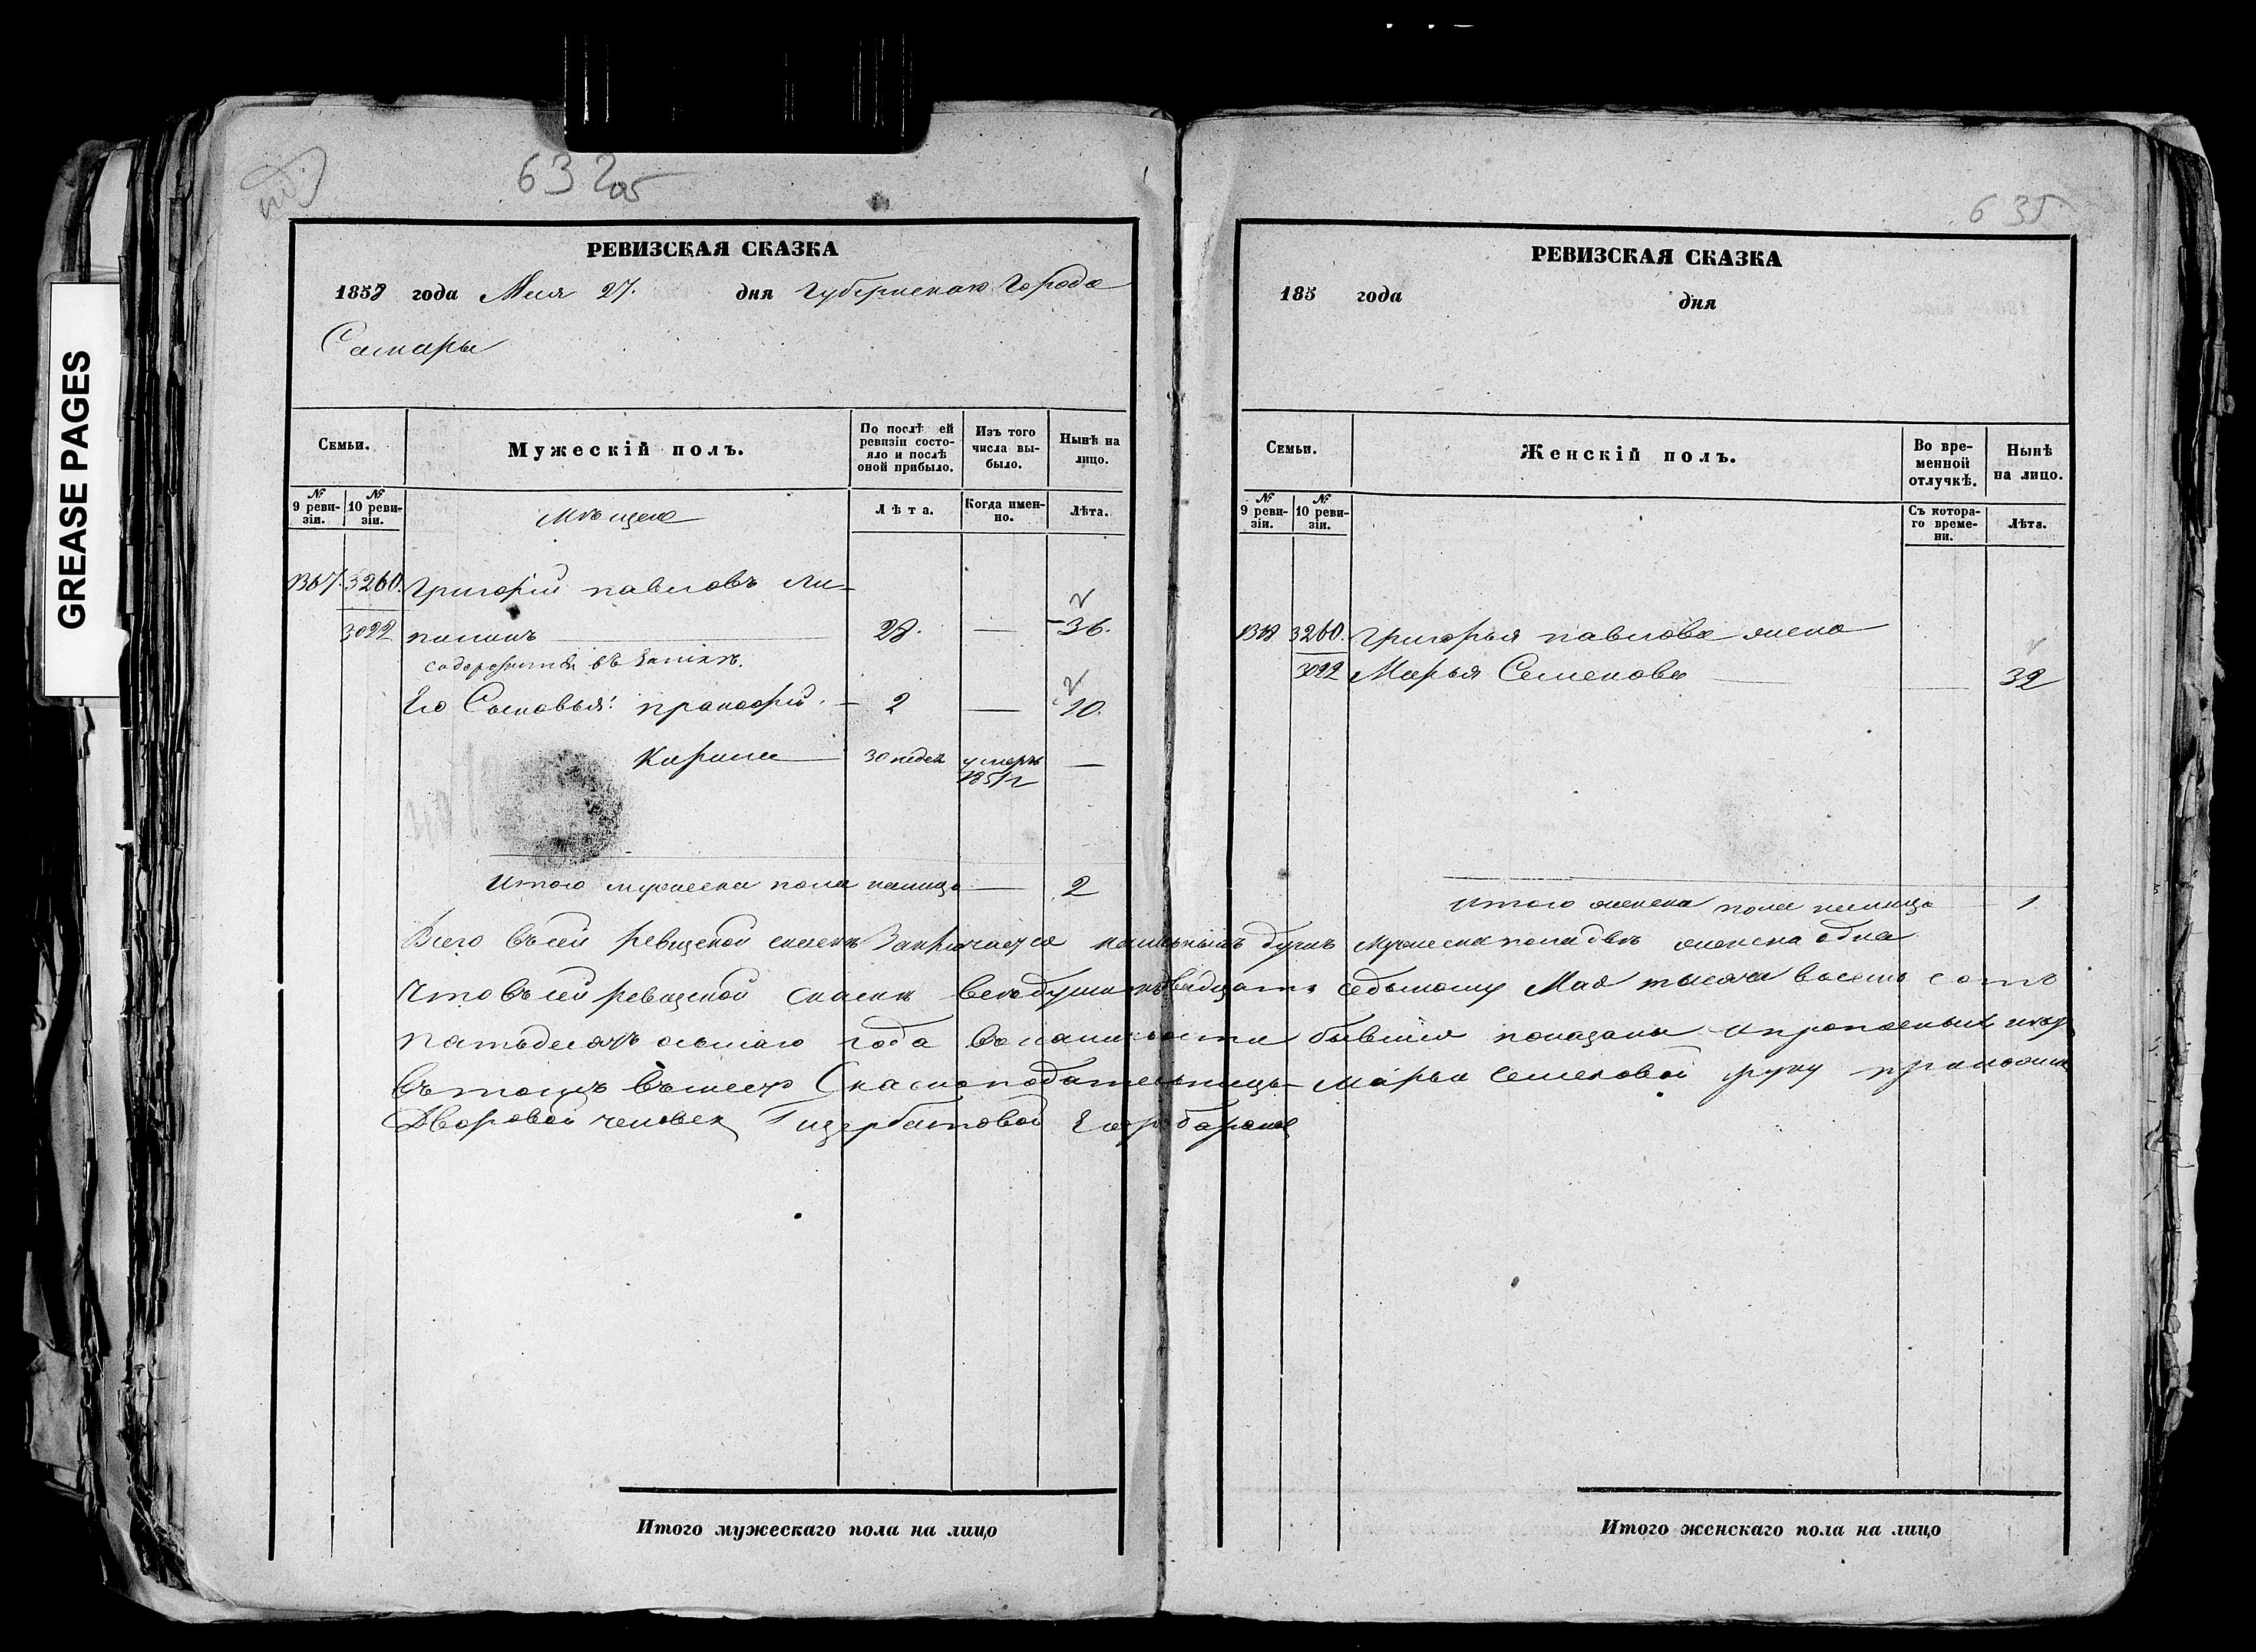 GREASE PAGES
632 об
635
РЕВИЗСКАЯ СКАЗКА
1858 года Мая 27. дня Губернскаго Города
Самары
Семьи.
Мужескій полъ.
По послѣдней ревизіи состояло и послѣ оной прибыло.
Изъ того числа выбыло.
Нынѣ на лицо.
№ 9 ревизіи.
№ 10 ревизіи.
Мѣщане
Лѣта.
Когда именно.
Лѣта.
1367. 3260. Григорій павловъ Ли-
3022 пилинъ 28. — 36.
содержится въ
Его Сыновья: прокофій. 2 — 10.
Кирила 30 недел умеръ 1851 г —
Итого мужеска пола налицо — 2
РЕВИЗСКАЯ СКАЗКА
185 года дня
Семьи.
Женскій полъ.
Во временной отлучкѣ.
Нынѣ на лицо.
№ 9 ревизіи.
№ 10 ревизіи.
Съ котораго времени.
Лѣта.
3260. Григорья павлова жена
3022 Марья Семенова — 32
Итого женска пола налицо — 1
Всего въ сей ревизской сказкѣ Заключается наличныхъ душъ мужеска пола двѣ женска одна
Что въ сей ревизской сказкѣ всѣ души къ двадцать седьмому Мая тысяча восемь сотъ
пятьдесятъ осьмаго года въ наличности бывшія показаны и прописныхъ нѣтъ
въ томъ вместо Сказкоподательницы Марьи Семеновой руку приложилъ
Дворовой человек Г щербатовой Егоръ
Итого мужескаго пола на лицо
Итого женскаго пола на лицо